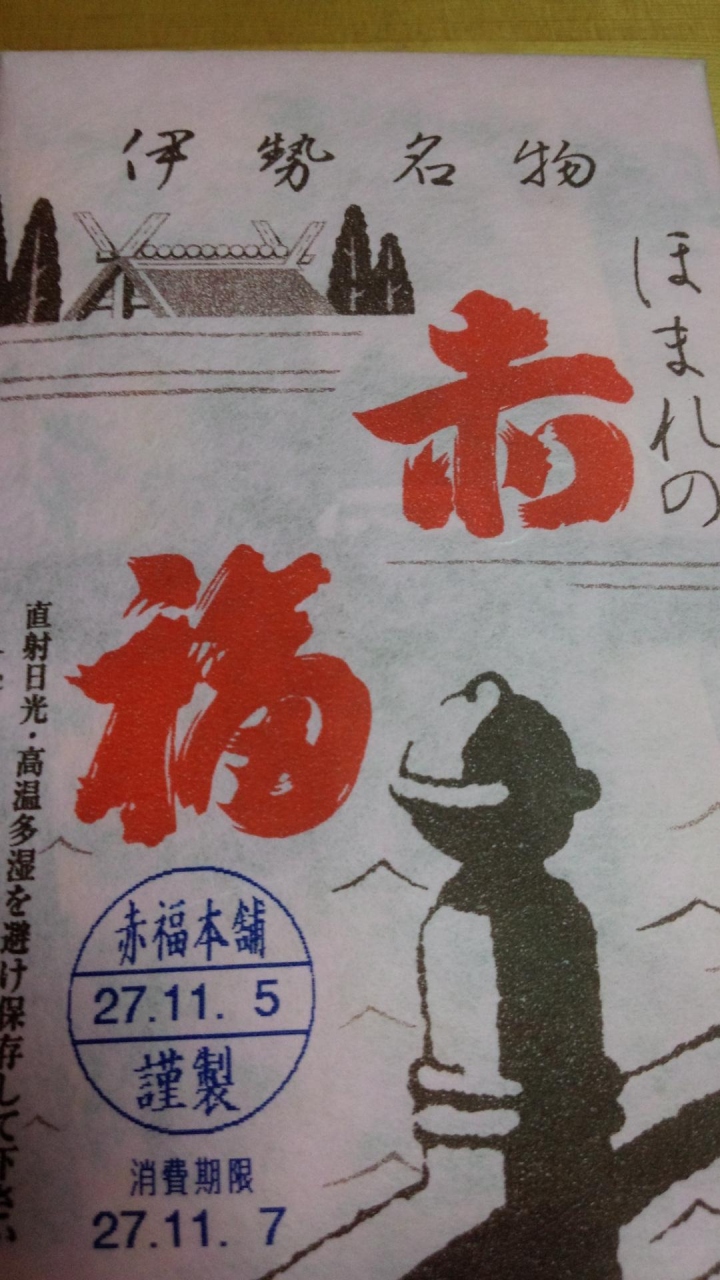 伊勢名物
ほまれの
赤福
直射日光・高温多湿を避け保存して下さい
赤福本舗
27.11. 5
謹製
消費期限
27.11. 7